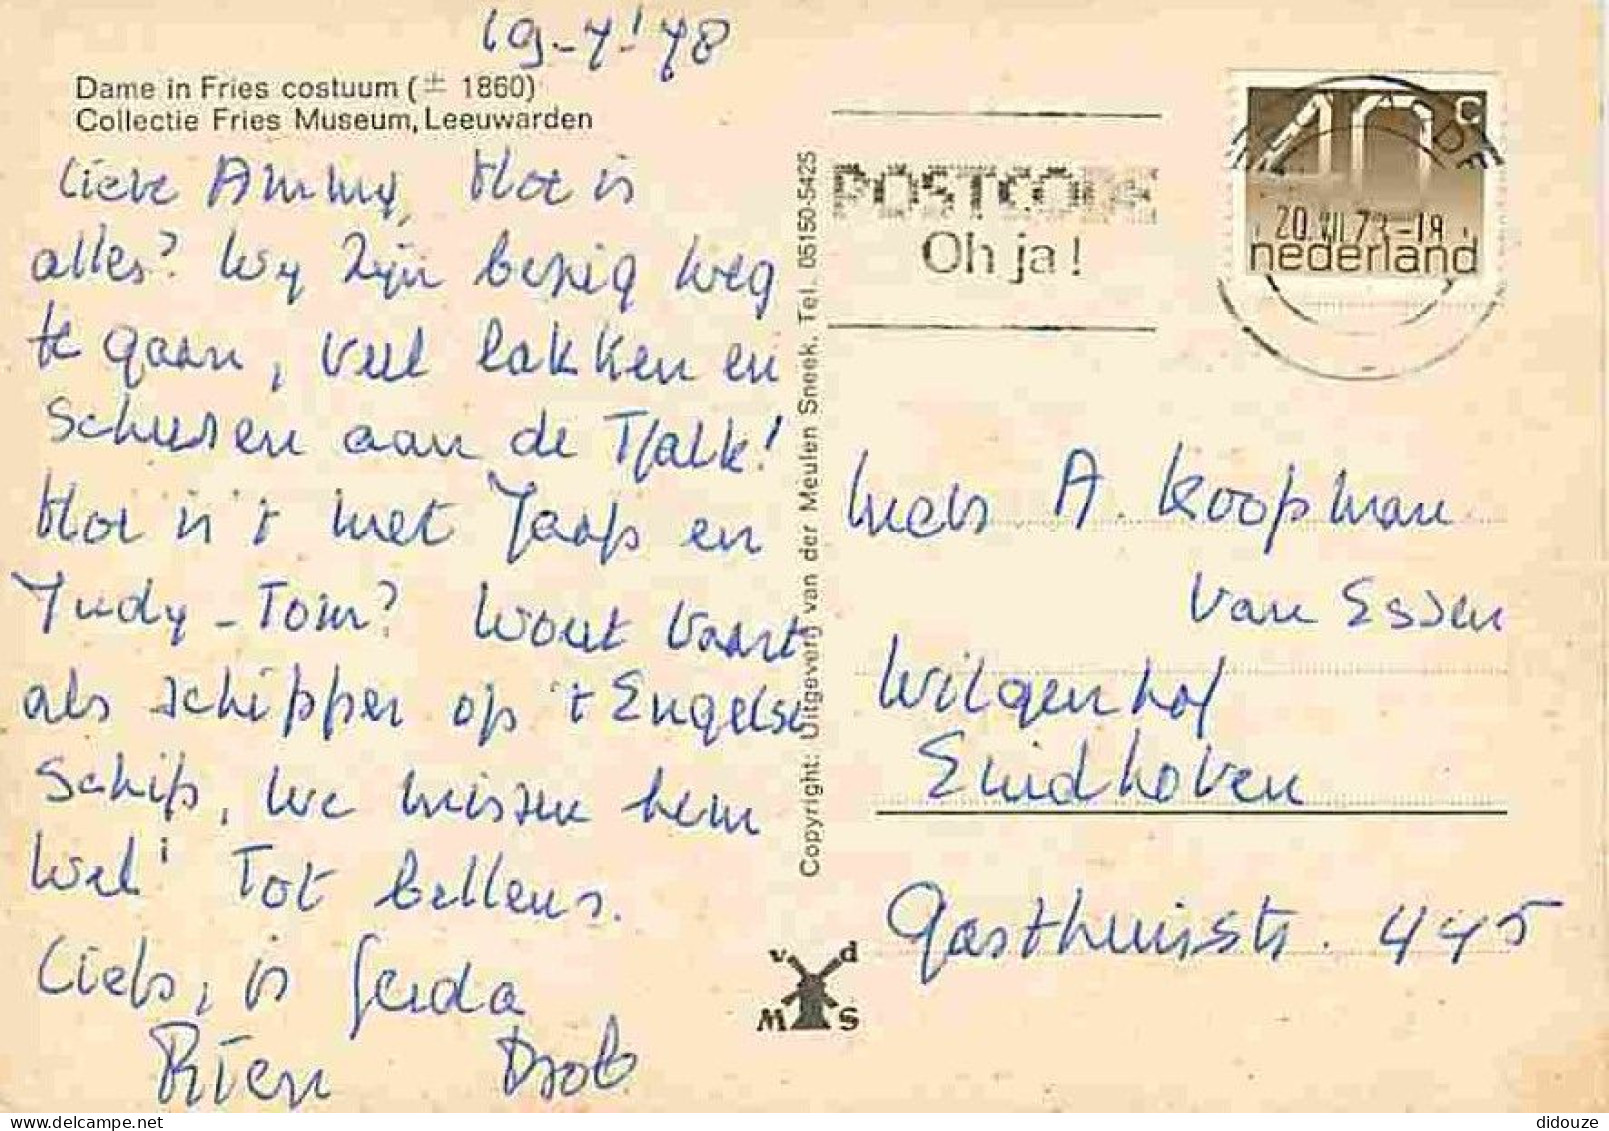 19-7-'78
Dame in Fries costuum (± 1860)
Collectie Fries Museum, Leeuwarden
Lieve Ammy, Hoe is
alles? Wy zijn bezig weg
te gaan, veel lakken en
schuren aan de Tjalk!
Hoe is 't met Jaap en
Judy - Tom? Wout vaart
als schipper op 't Engelse
schip, we missen hem
wel! Tot bellens.
Liefs, is Gerda
Rien Rob
Copyright: Uitgeverij van der Meulen Sneek, Tel. 05150-5425
POSTCODE
Oh ja!
40c
20.VII.78-19
nederland
A. Koopman
van Essen
Wilgenhof
Eindhoven
Gasthuisstr. 445
v d
M S
didouze